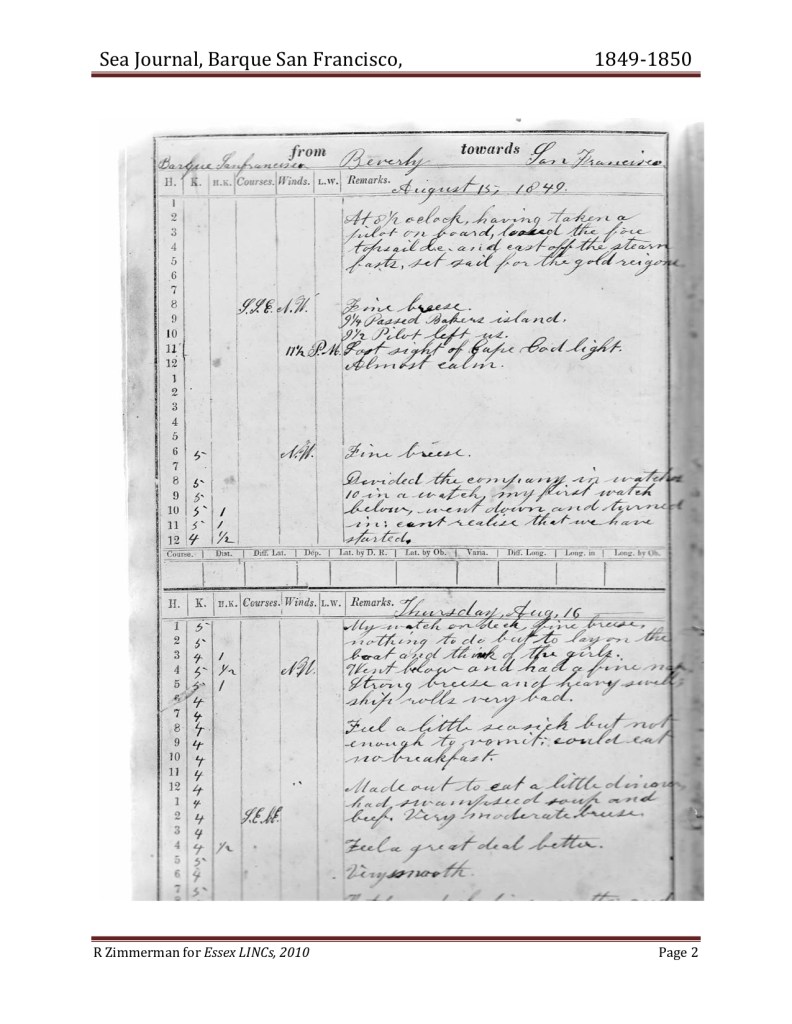 Sea Journal, Barque San Francisco, 1849-1850
Barque Sanfrancisco from Beverly towards San Francisco.
H. K. H.K. Courses. Winds. L.W. Remarks. August 15, 1849.
1
2 At 8½ oclock, having taken a
3 pilot on board, loosed the fore
4 topsail &c. and cast off the stearn
5 fasts, set sail for the gold reigons
6
7
8 S.S.E. N.W. Fine breese.
9 9¼ Passed Bakers island.
10 9½ Pilot left us.
11 11½ P.M. Lost sight of Cape Cod light.
12 Almost calm.
1
2
3
4
5
6 5 N.W. Fine breese.
7
8 5 Divided the company in watches
9 5 10 in a watch, my first watch
10 5 1 below, went down and turned
11 5 1 in: cant realise that we have
12 4 ½ started.
Course. Dist. Diff. Lat. Dep. Lat. by D. R. Lat. by Ob. Varia. Diff. Long. Long. in Long. by Ob.
H. K. H.K. Courses. Winds. L.W. Remarks. Thursday, Aug, 16
1 5 My watch on deck, fine breese,
2 5 nothing to do but to lay on the
3 4 1 boat and think of the girls.
4 5 ½ N.W. Went below and had a fine nap
5 5 1 Strong breese and heavy swell;
6 4 ship rolls very bad.
7 4
8 4 Feel a little seasick but not
9 4 enough to vomit; could eat
10 4 no breakfast.
11 4
12 4 Made out to eat a little dinner,
1 4 had, swampseed soup and
2 4 S.E.bE. beef. Very moderate breese.
3 4
4 4 ½ Feel a great deal better.
5 5
6 4 Very smooth.
7 5
R Zimmerman for Essex LINCs, 2010 Page 2